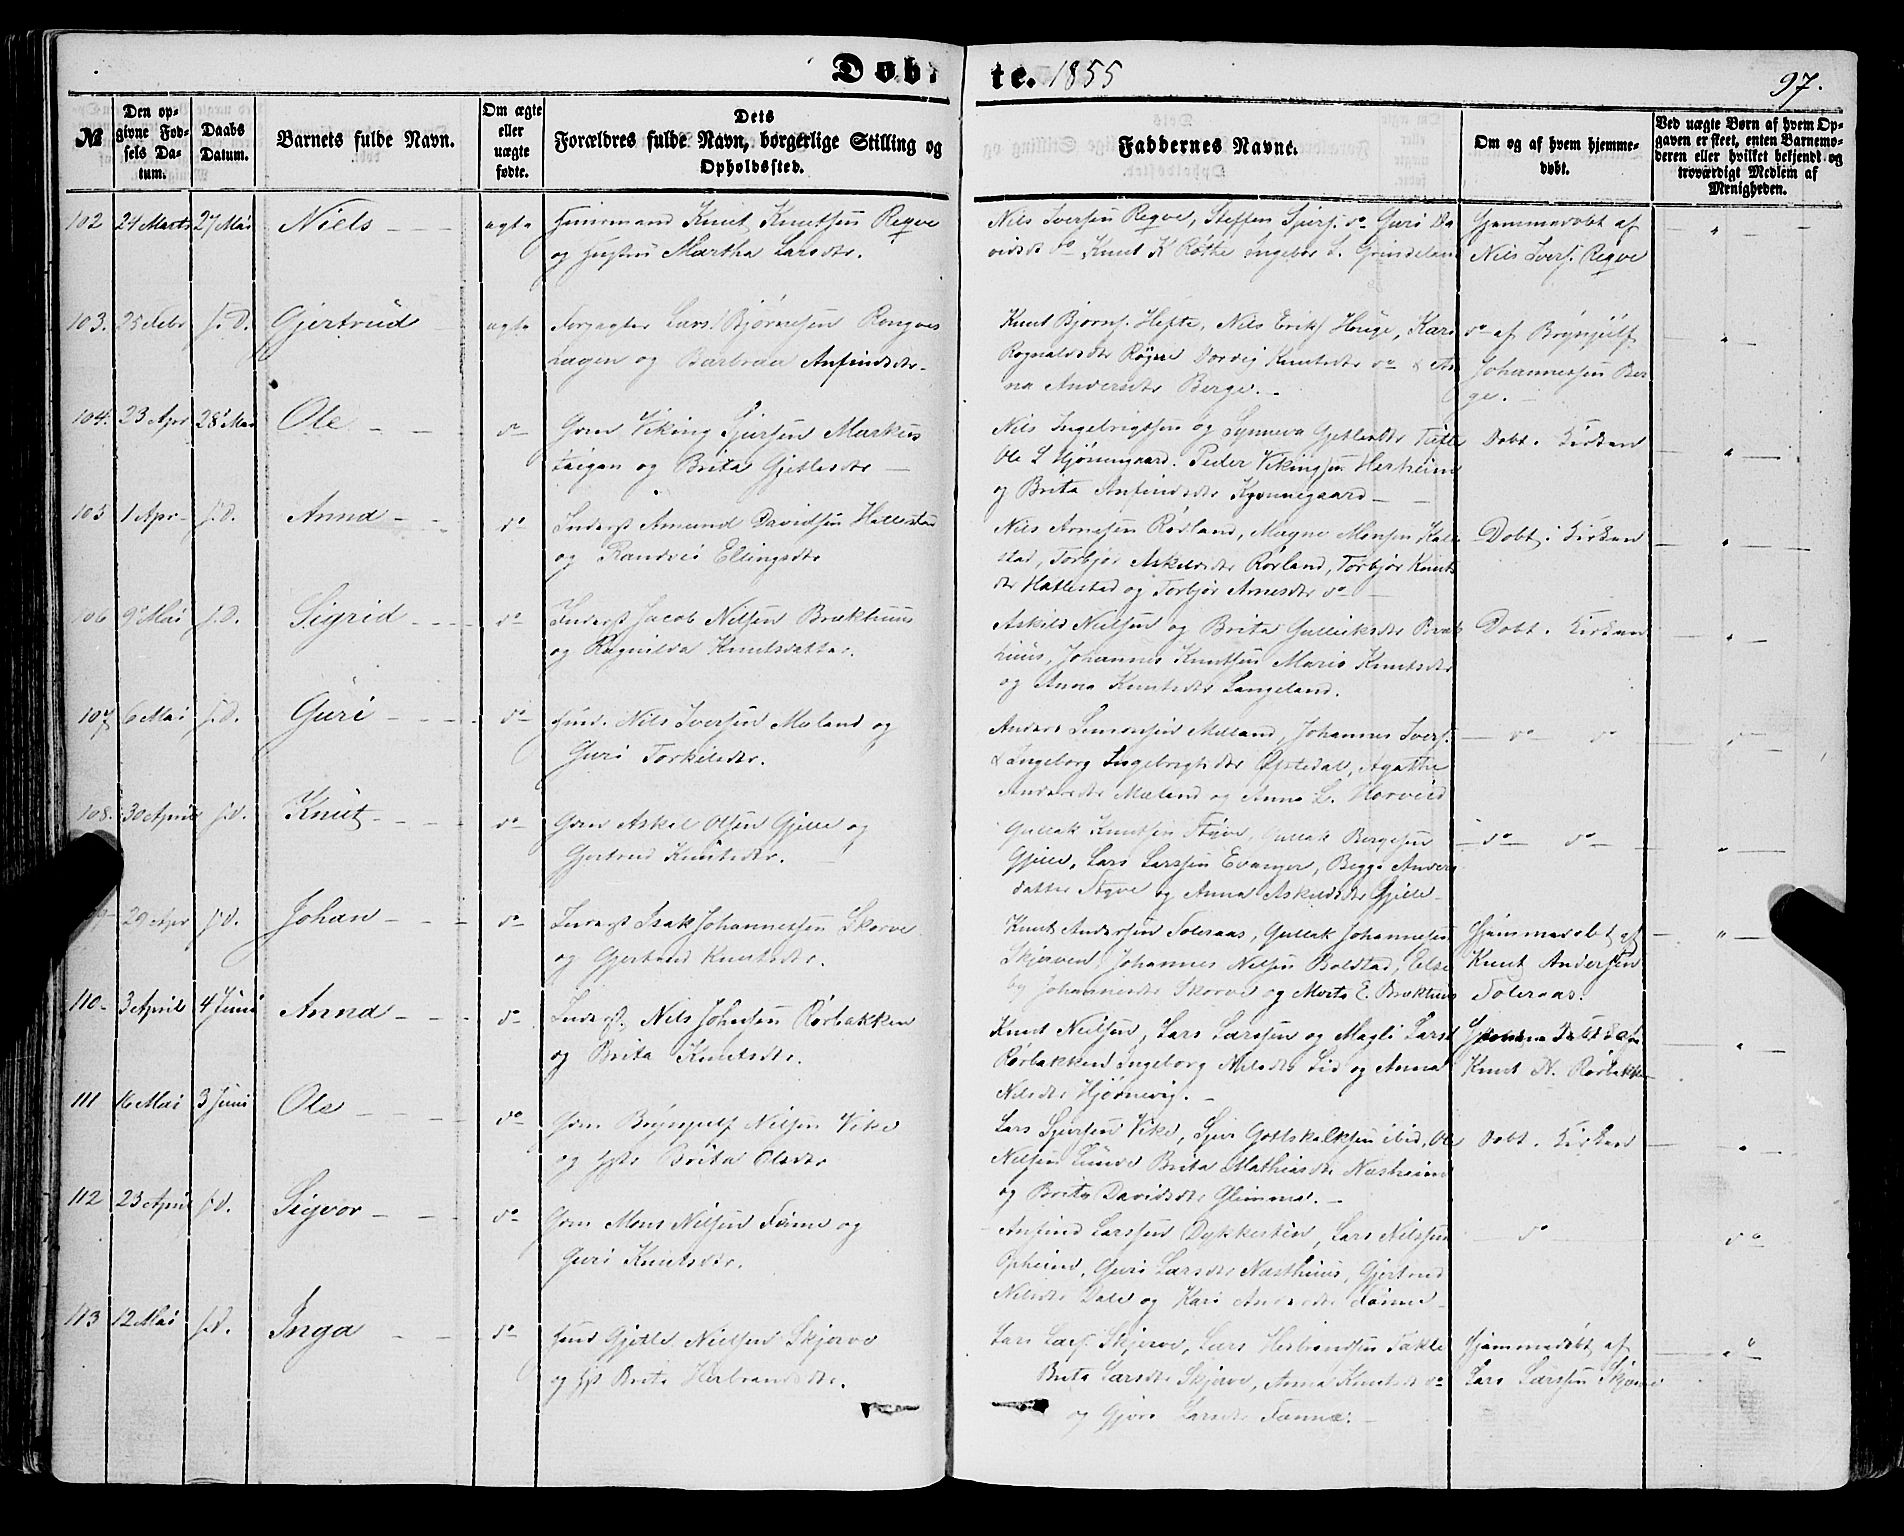 Døbte. 1855
97.
№
Den opgivne Fødsels Datum.
Daabs Datum.
Barnets fulde Navn.
Om ægte eller uægte fødte.
Dets Forældres fulde Navn, borgerlige Stilling og Opholdssted.
Faddernes Navne.
Om og af hvem hjemmedøbt.
Ved uægte Børn af hvem Opgaven er skeet, enten Barnemoderen eller hvilket bekjendt og troværdigt Medlem af Menigheden.
102 24 Marts 27 Mai Niels ægte Huusmand Knut Knutsen Reqve
og Hustru Martha Larsdtr.
Nils Iversen Reqve, Steffen Sjurs. do Guri Da
vidsdt do Knut K Røthe Ingebor L. Grindeland
Hjemmedøbt af
Nils Ivers. Reqve
103. 25 Febr s.D. Gjertrud ægte Forpagter Lars Bjørnesen Rongves
hagen og Barbraa Anfindsdtr.
Knut Bjørns. Hefte, Nils Eriks Houge, Kari
Rognaldsdtr Røgne Dordej Knutsdtr do & An
na Andersdtr Berge.
do af Brynjulf
Johannessen Ber
ge.
104. 23 Apr 28 Mai Ole do Grm Viking Sjursen Markus
teigen og Brita Gjetlesdtr
Nils Ingebrigtsen og Synneva Gjetlesdtr
Ole L Hjørnegaard. Peder Vikingsen Herheim
og Brita Anfindsdtr Kyonnegaard
Døbt i Kirken
105 1 Apr s.D. Anna do Inderst Amund Davidsen Hallestad
og Randvei Ellingsdtr
Nils Arnesen Rørland, Magne Monsen Halle
stad, Torbjør Askildsdtr Rørland, Torbjør Knuts
dtr Hallestad og Torbjør Arnesdtr do
Døbt i Kirken
106 9 Mai s.D. Sigrid do Inderst Jacob Nilsen Brækhuus
og Ragnilda Knutsdatter.
Askild Nielsen og Brita Gulleiksdtr Bræk
huus, Johannes Knutsen Mario Knutsdtr
og Anna Knutsdtr Langeland.
Døbt i Kirken
107 6 Mai s.D. Guri do Huusd. Nils Iversen Mæland og
Guri Torkilsdtr.
Anders Simonsen Mæland, Johannes Ivers.
& Ingeborg Ingebrigtsdtr Opsedal, Agatha
Andersdtr Mæland og Anna L. Horvei
do do
108. 30 April s.d. Knut do Grm Askel Olsen Gjelle og
Gjertrud Knutsdtr.
Gullak Knutsen Fyve, Gullak Bergesen
Gjelle, Lars Larssen Evanger, Begga Anders
datter Fyve og Anna Askildsdtr Gjelle
do do
29 Apr s.d. Johan do Inderst Isak Johannessen Skorve
og Gjertrud Knutsdtr.
Knut Andersen Toleraas, Gullak Johannesen
Skjerven, Johannes Nilsen Bolstad, Else
by Johannesdtr Skorve og Marta E. Brækhuus
Hjemmedøbt af
Knut Andersen
Toleraas.
110 3 April 4 Juni Anna do Inderst. Nils Johnsen Rørbakken
og Brita Knutsdtr.
Knut Nielsen, Lars Larssen og Magli Larsd
Rørbakken Ingeborg Nilsdtr Lid og Anna
Nilsdtr Hjørnevig.
Knut N. Rørbakken
111 16 Mai 3 Juni Ole do Grm Brynjulf Nilsen Vike
og Hstr Brita Olsdtr
Lars Sjursen Vike, Sjur Gottskalksen ibid, Ole
Nilsen Lunde Brita Mathiasdtr Næsheim
og Brita Davidsdtr Glimme.
Døbt i Kirken
112 23 April s.d. Sigvor do Grm Mons Nilsen Fenne og
Guri Knutsdtr.
Anfind Larssen Dykkesten, Lars Nilssen
Opheim, Guri Larsdtr Næsthuus, Gjertrud
Nilsdtr Dale og Kari Andersdtr Fenne
do do
113 12 Mai s.d. Inga do Huusd Gjetle Nielsen Skjerve
og Hst Brita Herbrandsdtr.
Lars Lars. Skjerve, Lars Herbrandsen Takle
Brita Larsdtr Skjerve, Anna Knutsdtr do
og Gjøri Larsdtr Fenne.
Hjemmedøbt af
Lars Larssen Skjerve